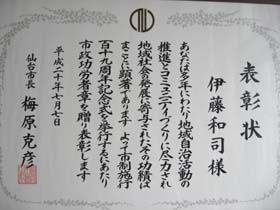 表彰状
伊藤和司様
あなたは多年にわたり地域自治活動の
推進とコミュニティづくりに尽力され
地域社会発展に寄与されたその功績は
まことに顕著であります よって市制施行
百十九周年記念式を挙行するにあたり
市政功労者章を贈り表彰します
平成二十年七月七日
仙台市長 梅原克彦